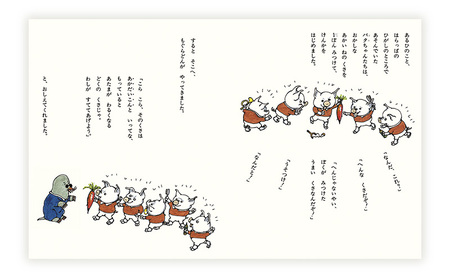 あるひのこと、
はらっぱの
ひがしのところで
あそんでいた
ちゃんたちは、
おかしな
あかい ねの くさを
1ぽん みつけて、
けんかを
はじめました。
「なんだ、これ?」
「へんな くさだぞ」
「へんじゃないやい、
ぼくが みつけた
うまい くさなんだぞ」
「うそつけ!」
「なんだと!」
すると そこへ、
もぐらどんが やってきました。
「こら、こら、そのくさは
あかだいこんと いってな、
もっていると
あたまが わるくなる
どくの くさじゃ。
わしが すててあげよう」
と、おしえてくれました。